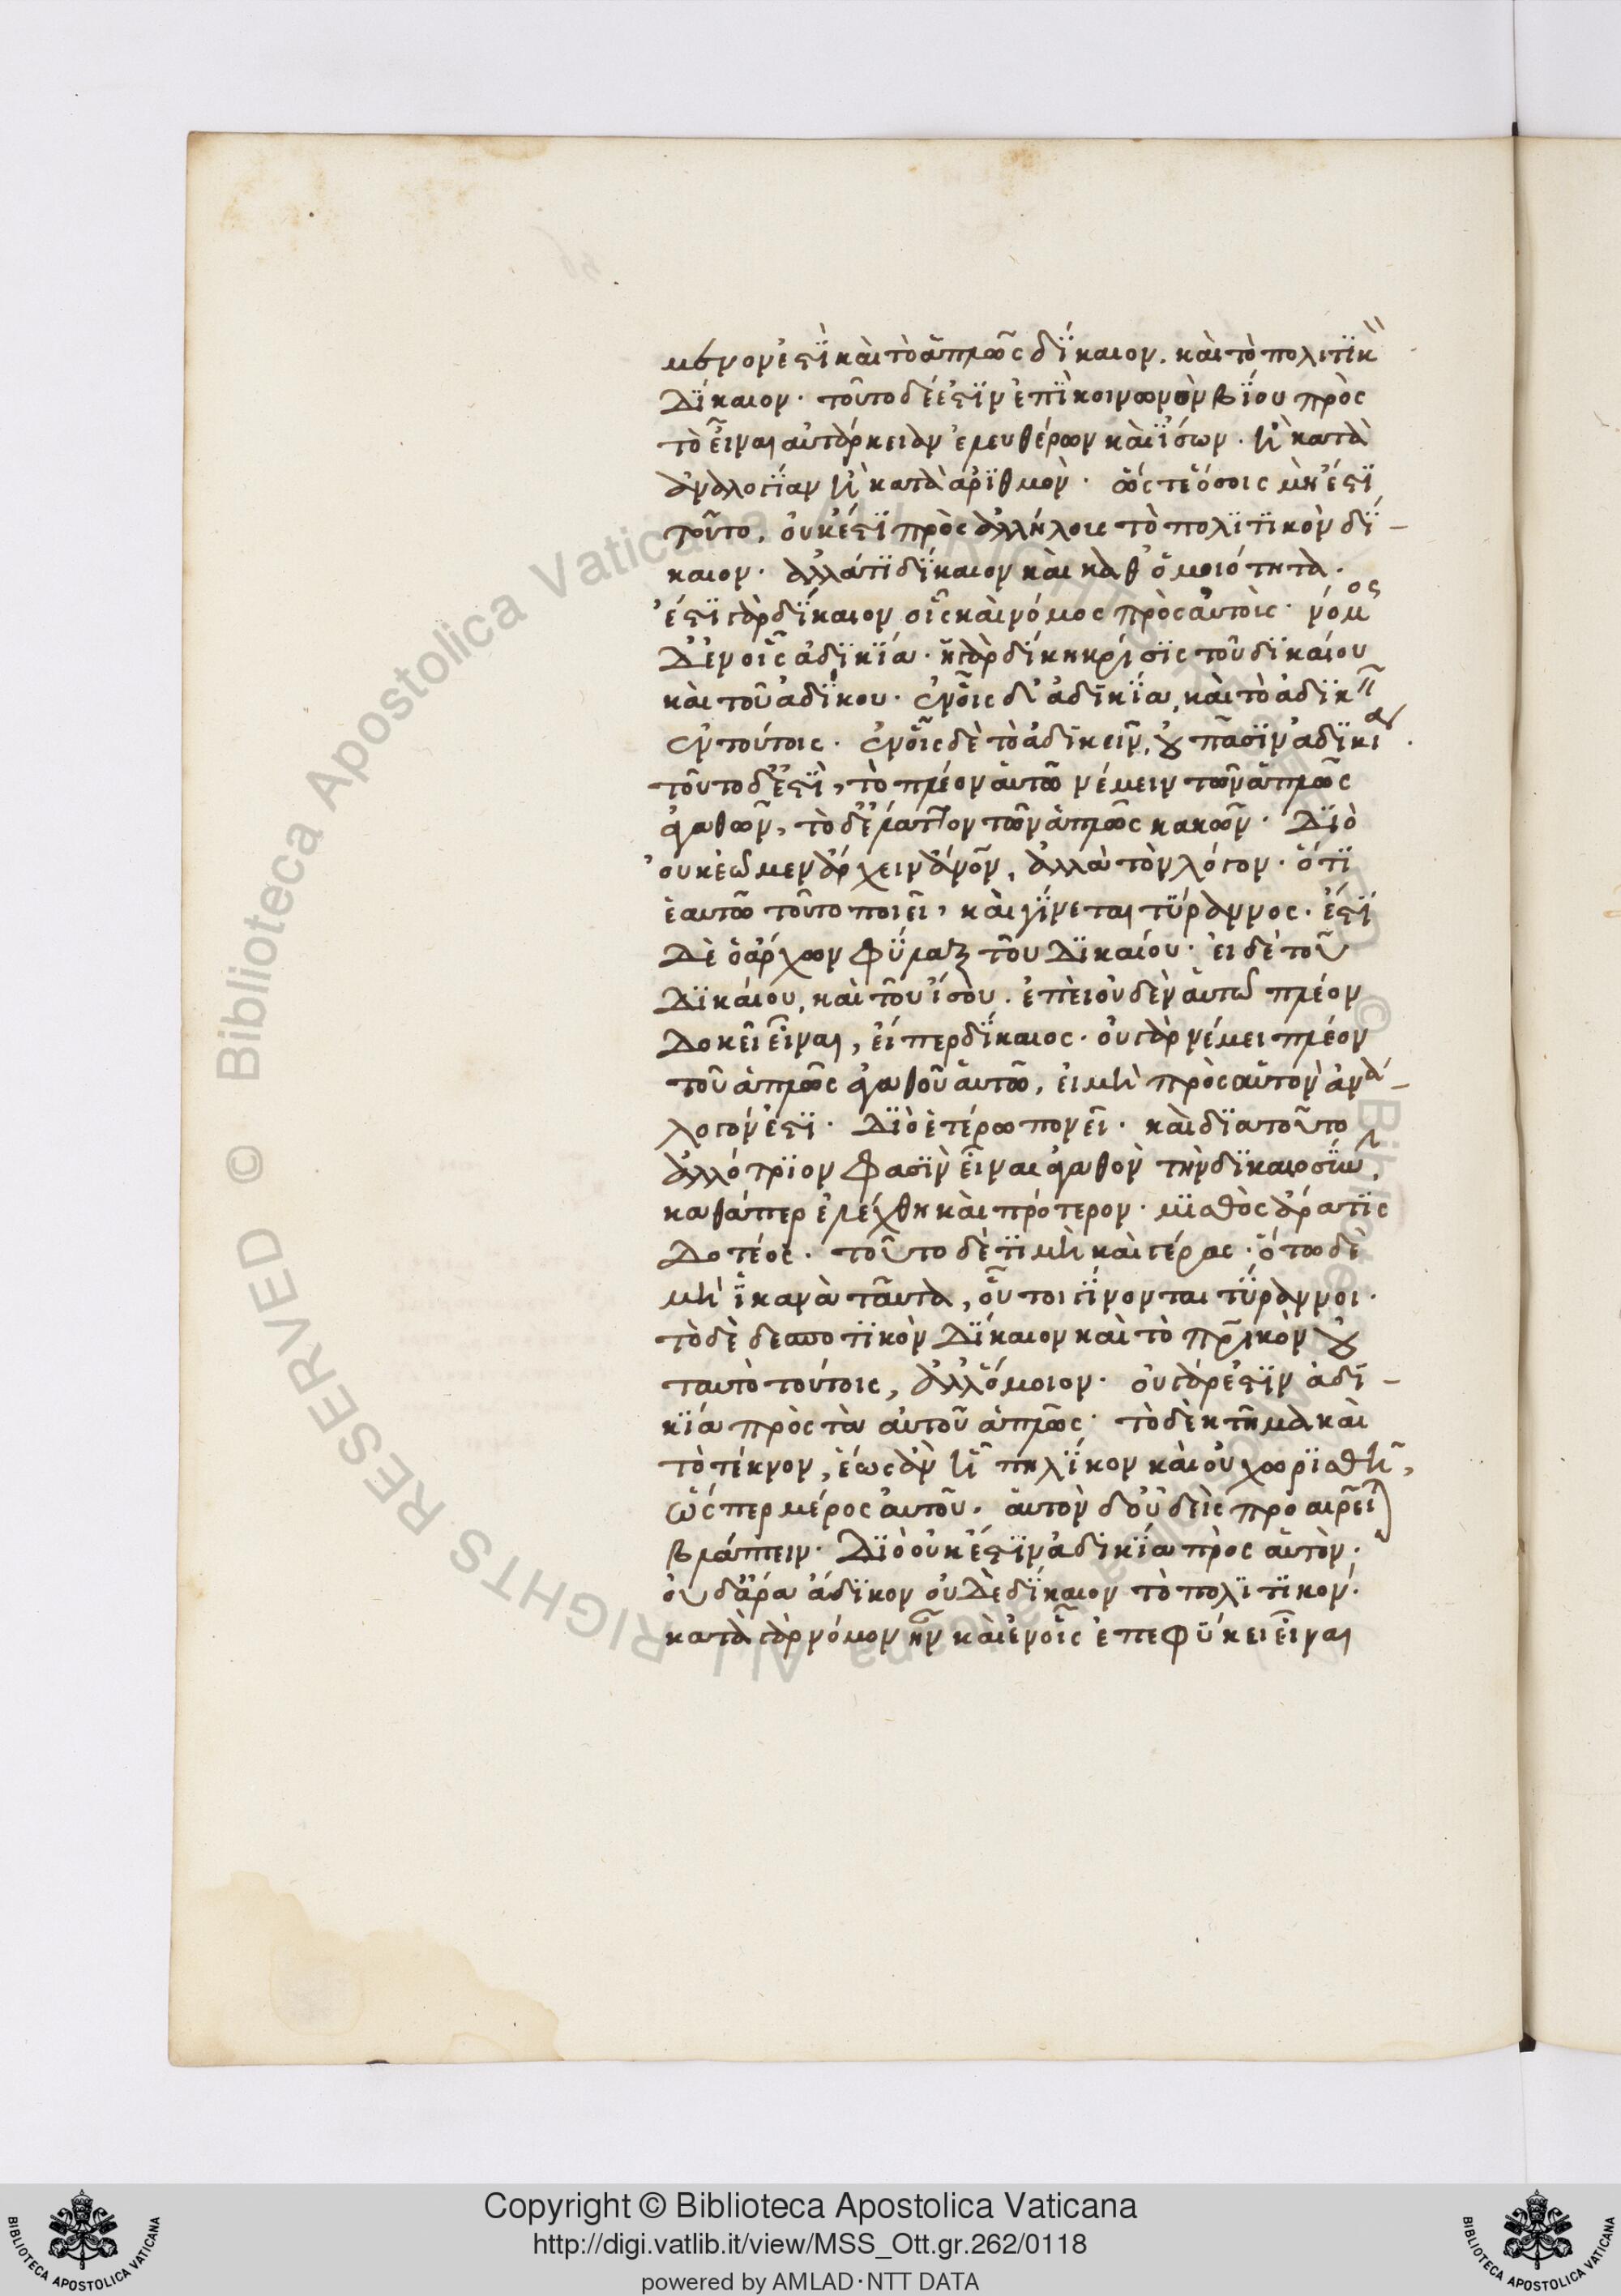 μενον ἐστὶ καὶ τὸ ἁπλῶς δίκαιον. καὶ τὸ πολιτικ
δίκαιον· τοῦτο δέ ἐστιν ἐπὶ κοινωνῶν βίου πρὸς
τὸ εἶναι αὐτάρκειαν ἐλευθέρων καὶ ἴσων· ἢ κατὰ
ἀναλογίαν ἢ κατὰ ἀριθμόν· ὥστε ὅσοις μὴ ἐστὶ
τοῦτο, οὐκ ἐστὶ πρὸς ἀλλήλους τὸ πολιτικὸν δί-
καιον· ἀλλά τι δίκαιον καὶ καθ ὁμοιότητα.
ἐστὶ γὰρ δίκαιον οἷς καὶ νόμος πρὸς αὐτοὺς· νόμος
δ' ἐν οἷς ἀδικία· ἡ γὰρ δίκη κρίσις τοῦ δικαίου
καὶ τοῦ ἀδίκου· ἐν οἷς δ' ἀδικία, καὶ τὸ ἀδικεῖν
ἐν τούτοις· ἐν οἷς δὲ τὸ ἀδικεῖν, οὐ πᾶσιν ἀδικία.
τοῦτο δ' ἐστὶ, τὸ πλέον αὑτῶ νέμειν τῶν ἁπλῶς
ἀγαθῶν, τὸ δ' ἔλαττον τῶν ἁπλῶς κακῶν· Διὸ
οὐκ ἐῶμεν ἄρχειν ἄνον, ἀλλὰ τὸν λόγον· ὅτι
ἑαυτῶ τοῦτο ποιεῖ, καὶ γίνεται τύραννος. ἐστὶ
δὲ ὁ ἄρχων φύλαξ τοῦ δικαίου· εἰ δὲ τοῦ
δικαίου, καὶ τοῦ ἴσου. ἐπεὶ οὐδὲν αὑτῶ πλέον
δοκεῖ εἶναι, εἴπερ δίκαιος· οὐ γὰρ νέμει πλέον
τοῦ ἁπλῶς ἀγαθοῦ αὑτῶ, εἰ μὴ πρὸς αὑτὸν ἀνά-
λογόν ἐστι· Διὸ ἑτέρω πονεῖ· καὶ διὰ τοῦτο
ἀλλότριον φασὶν εἶναι ἀγαθὸν τὴν δικαιοσύνην,
καθάπερ ἐλέχθη καὶ πρότερον· μισθὸς ἄρα τις
δοτέος· τοῦτο δὲ τιμὴ καὶ γέρας· ὅτω δὲ
μὴ ἱκανὰ ταῦτα, οὗτοι γίνονται τύραννοι·
τὸ δὲ δεσποτικὸν δίκαιον καὶ τὸ πρικὸν οὐ
ταυτὸ τούτοις, ἀλλ' ὅμοιον· οὐ γάρ ἐστιν ἀδι-
κία πρὸς τὰ αὑτοῦ ἁπλῶς· τὸ δὲ κτῆμα καὶ
τὸ τέκνον, ἕως ἂν ἦ πηλίκον καὶ οὐ χωρισθῆ,
ὥσπερ μέρος αὑτοῦ. αὑτὸν δ' οὐδεὶς προαιρεῖ
βλάπτειν· Διὸ οὐκ ἐστὶν ἀδικία πρὸς αὑτὸν.
οὐδ' ἄρα ἄδικον οὐδὲ δίκαιον τὸ πολιτικόν·
κατὰ γὰρ νόμον ἦν καὶ ἐν οἷς ἐπεφύκει εἶναι
Copyright © Biblioteca Apostolica Vaticana
http://digi.vatlib.it/view/MSS_Ott.gr.262/0118
powered by AMLAD·NTT DATA